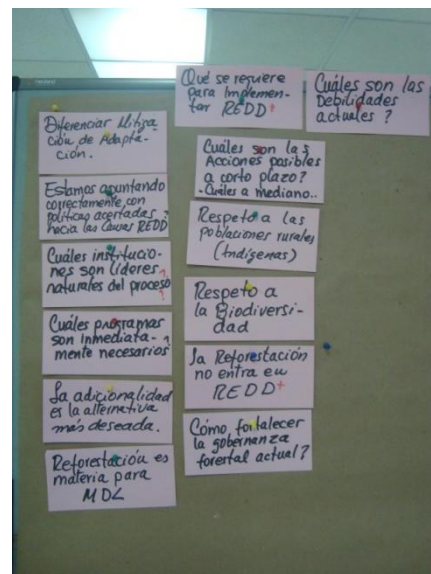 Diferenciar Mitiga
ción de Adapta-
ción.
Estamos apuntando
correctamente, con
políticas acertadas ?
hacia las Causas REDD
Cuáles institucio-
nes son líderes ?
naturales del proceso ?
Cuáles programas
son inmediata- ?
mente necesarios
La adicionalidad
es la alternativa
más deseada.
Reforestación es
materia para
MDL
Qué se requiere
para Implemen-
tar REDD+
Cuáles son las
Acciones posibles
a corto plazo?
- Cuáles a mediano..
Respeto a las
poblaciones rurales
(Indígenas)
Respeto a
la Biodiversi-
dad
La Reforestación
no entra en
REDD+
Cómo fortalecer
la gobernanza
forestal actual?
Cuáles son las
Debilidades
actuales ?